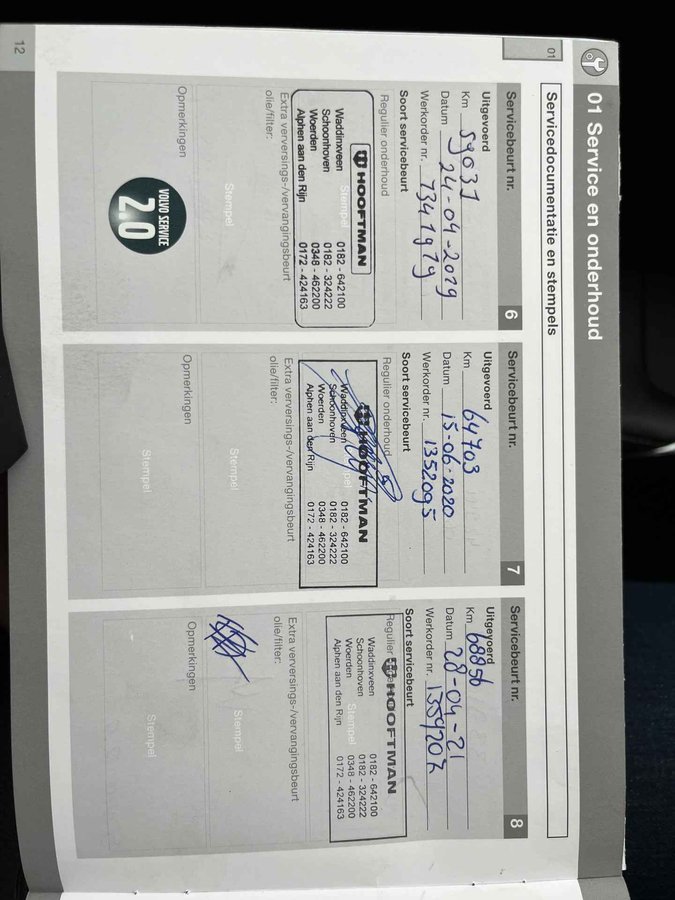 01 Service en onderhoud
01
Servicedocumentatie en stempels
Servicebeurt nr. 6
Uitgevoerd
Km 59031
Datum 24-04-2019
Werkorder nr. 1341919
Soort servicebeurt
Regulier onderhoud
HOOFTMAN
Stempel
Waddinxveen 0182 - 642100
Schoonhoven 0182 - 324222
Woerden 0348 - 462200
Alphen aan den Rijn 0172 - 424163
Extra verversings-/vervangingsbeurt
olie/filter:
Stempel
Opmerkingen
VOLVO SERVICE
2.0
Servicebeurt nr. 7
Uitgevoerd
Km 64703
Datum 15-06-2020
Werkorder nr. 1352095
Soort servicebeurt
Regulier onderhoud
HOOFTMAN
Waddinxveen 0182 - 642100
Schoonhoven 0182 - 324222
Woerden 0348 - 462200
Alphen aan den Rijn 0172 - 424163
Extra verversings-/vervangingsbeurt
olie/filter:
Stempel
Opmerkingen
Stempel
Servicebeurt nr. 8
Uitgevoerd
Km 68856
Datum 28-04-21
Werkorder nr. 1359207
Soort servicebeurt
Regulier
HOOFTMAN
Waddinxveen 0182 - 642100
Schoonhoven 0182 - 324222
Woerden Stempel 0348 - 462200
Alphen aan den Rijn 0172 - 424163
Extra verversings-/vervangingsbeurt
olie/filter:
Stempel
Opmerkingen
Stempel
12